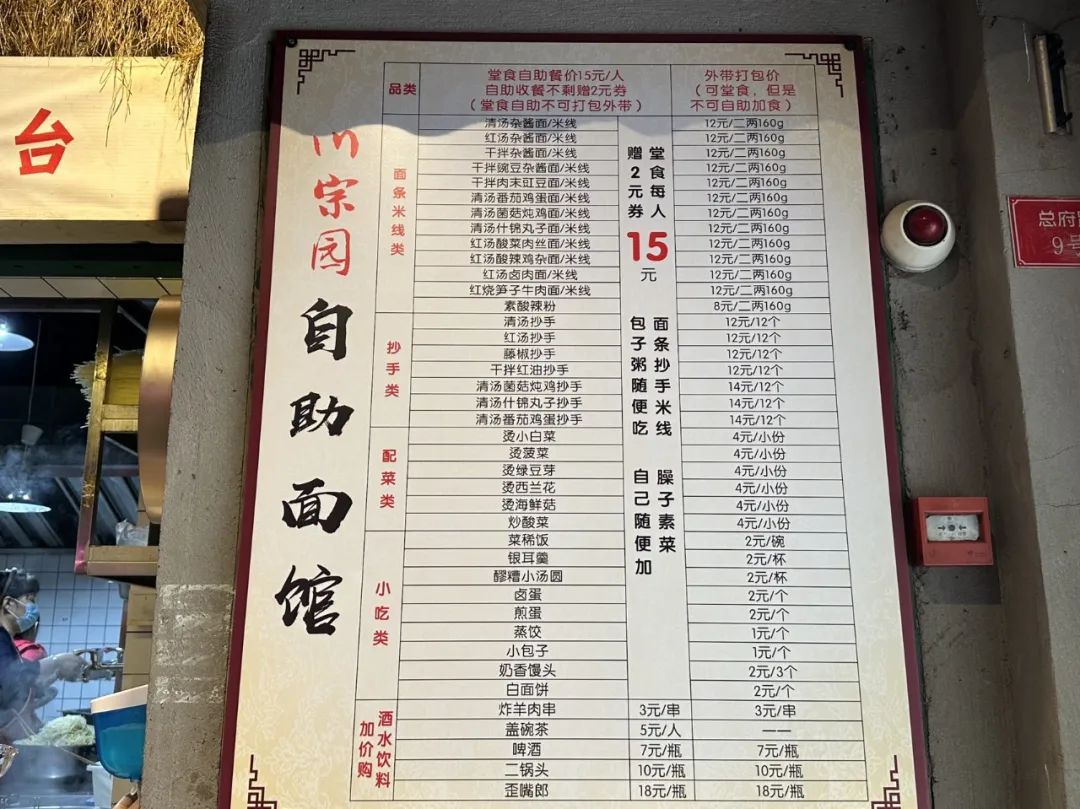 台
川宗园
自助面馆
品类
堂食自助餐价15元/人
自助收餐不剩赠2元券
(堂食自助不可打包外带)
外带打包价
(可堂食，但是
不可自助加食)
面条米线类
清汤杂酱面/米线 12元/二两160g
红汤杂酱面/米线 12元/二两160g
干拌杂酱面/米线 12元/二两160g
干拌豌豆杂酱面/米线 12元/二两160g
干拌肉末豇豆面/米线 12元/二两160g
清汤番茄鸡蛋面/米线 12元/二两160g
清汤菌菇炖鸡面/米线 12元/二两160g
清汤什锦丸子面/米线 12元/二两160g
红汤酸菜肉丝面/米线 12元/二两160g
红汤酸辣鸡杂面/米线 12元/二两160g
红汤卤肉面/米线 12元/二两160g
红烧笋子牛肉面/米线 12元/二两160g
素酸辣粉 8元/二两160g
抄手类
清汤抄手 12元/12个
红汤抄手 12元/12个
藤椒抄手 12元/12个
干拌红油抄手 12元/12个
清汤菌菇炖鸡抄手 14元/12个
清汤什锦丸子抄手 14元/12个
清汤番茄鸡蛋抄手 14元/12个
配菜类
烫小白菜 4元/小份
烫菠菜 4元/小份
烫绿豆芽 4元/小份
烫西兰花 4元/小份
烫海鲜菇 4元/小份
炒酸菜 4元/小份
小吃类
菜稀饭 2元/碗
银耳羹 2元/杯
醪糟小汤圆 2元/杯
卤蛋 2元/个
煎蛋 2元/个
蒸饺 1元/个
小包子 1元/个
奶香馒头 2元/3个
白面饼 2元/个
堂食每人
赠2元券
15
元
面条抄手米线
包子粥随便吃
臊子素菜
自己随便加
酒水饮料
加价购
炸羊肉串 3元/串 3元/串
盖碗茶 5元/人 ——
啤酒 7元/瓶 7元/瓶
二锅头 10元/瓶 10元/瓶
歪嘴郎 18元/瓶 18元/瓶
总府
9号